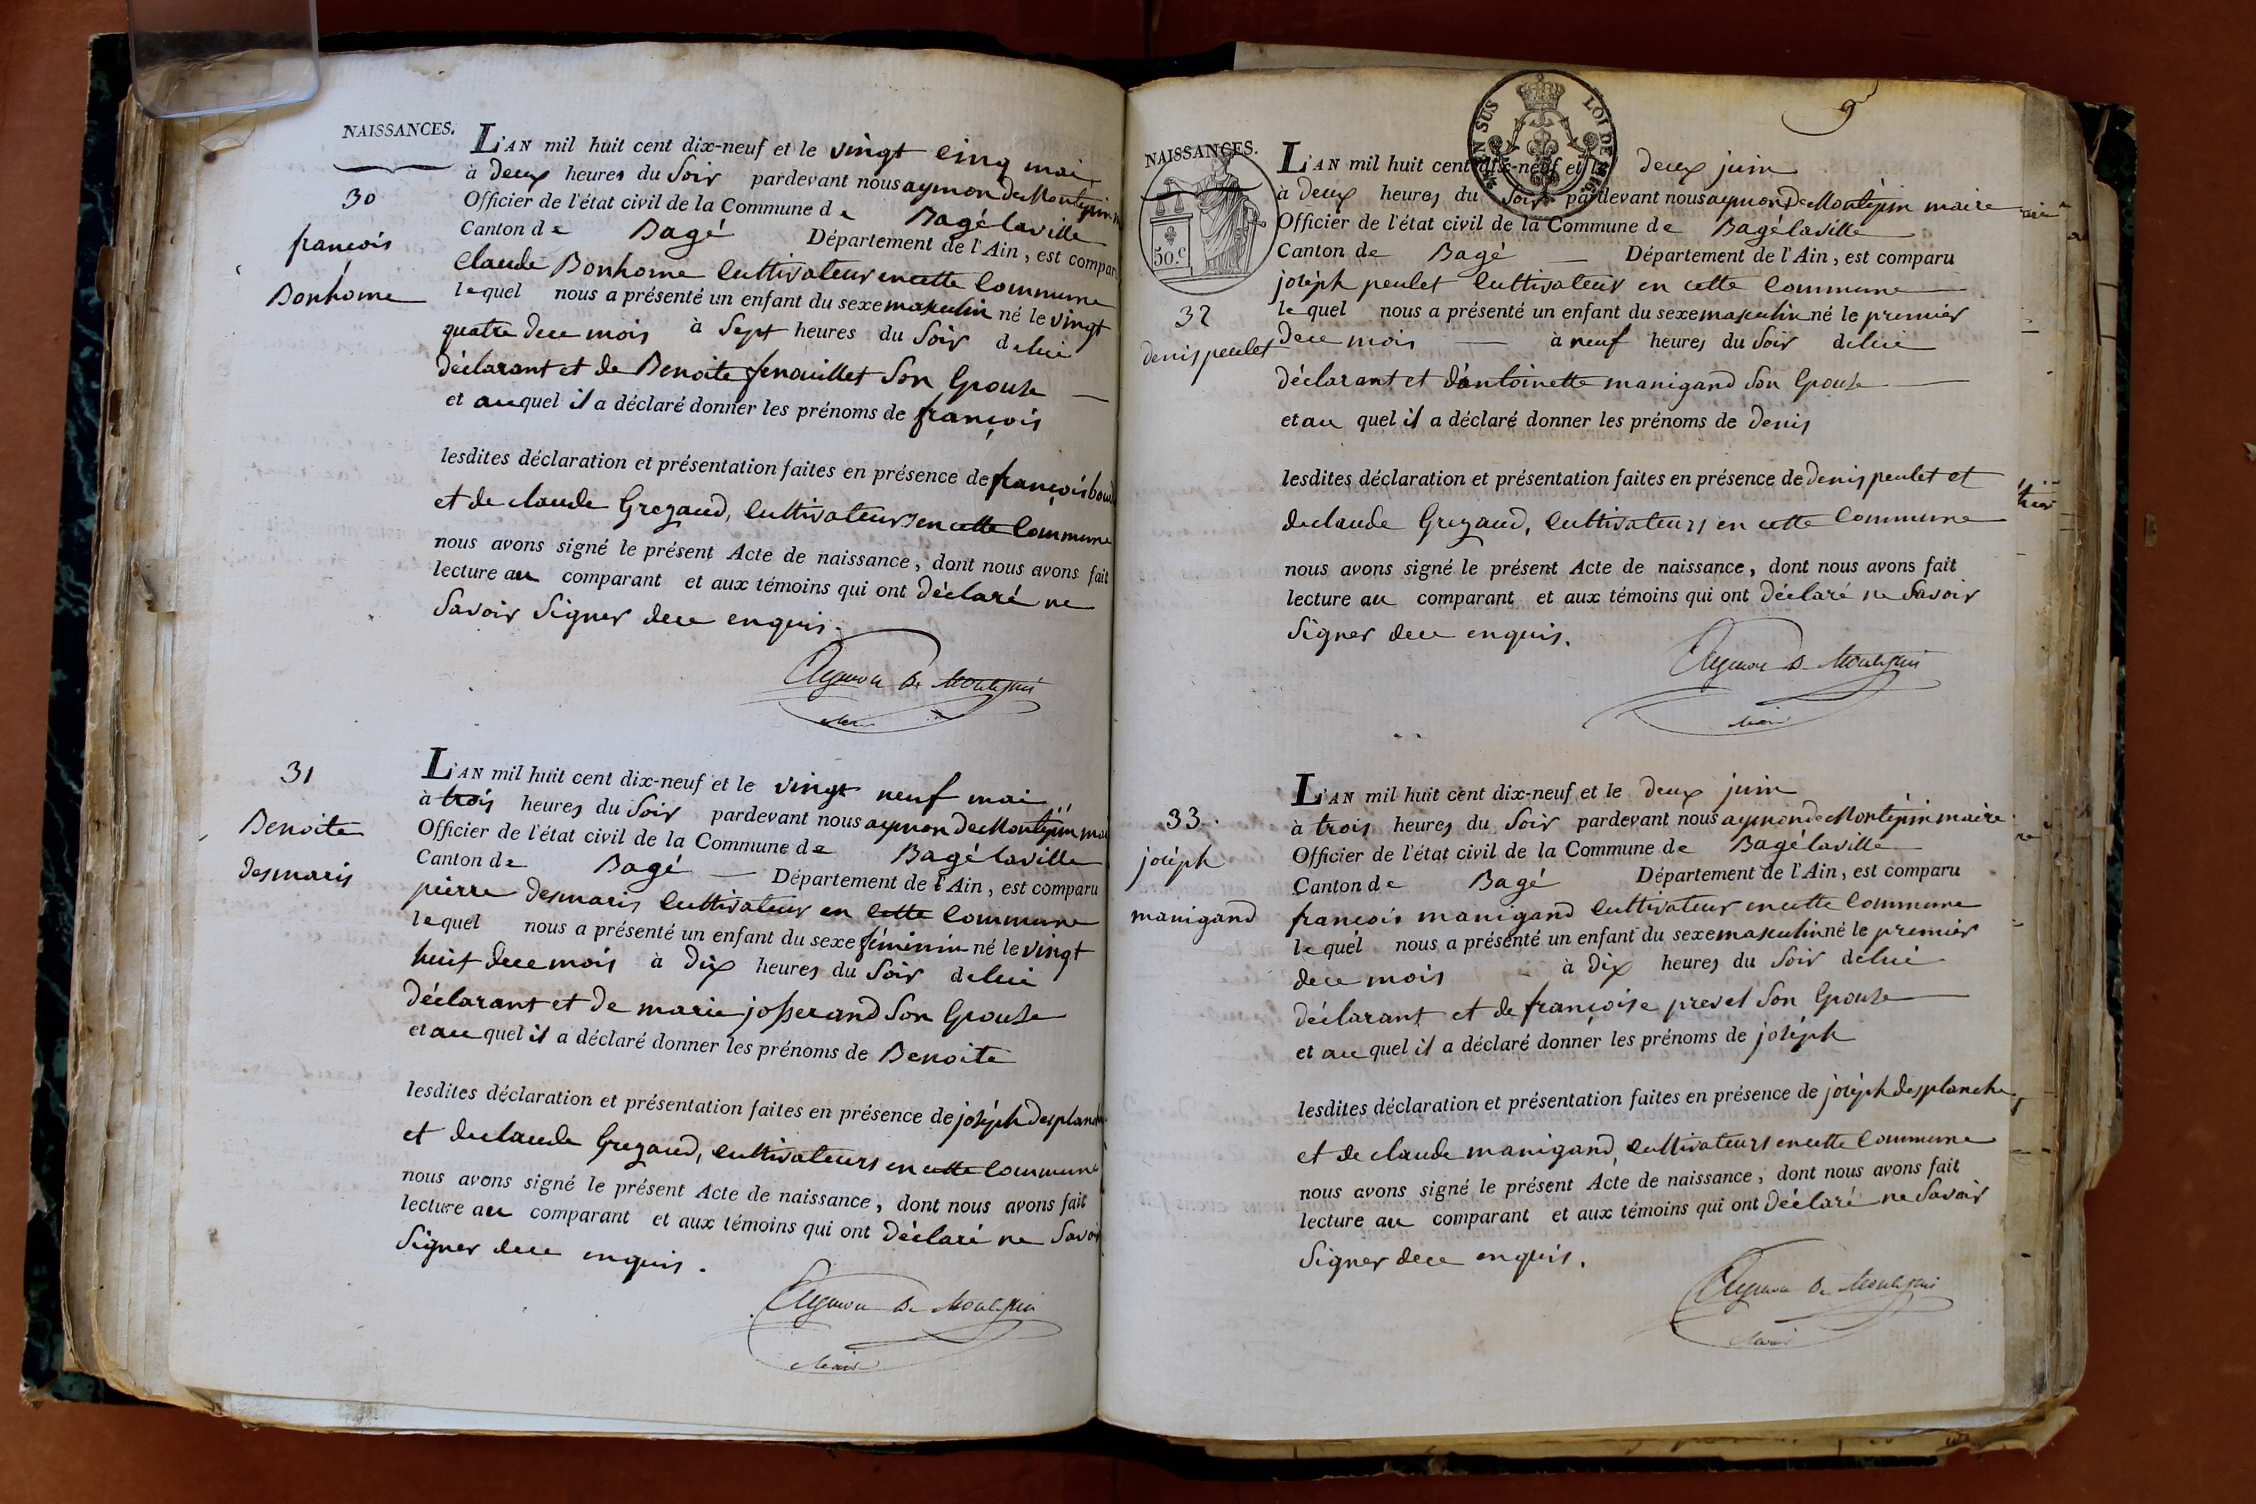 NAISSANCES.
30
françois
Bonhome
L'AN mil huit cent dix-neuf et le vingt cinq mai
à deux heures du Soir pardevant nous aymon de Montépin
Officier de l'état civil de la Commune de Bagé laville
Canton de Bagé Département de l'Ain, est comparu
claude Bonhome Cultivateur en cette Commune
lequel nous a présenté un enfant du sexe masculin né le vingt
quatre de ce mois à Sept heures du Soir de lui
déclarant et de Benoite fenouillet Son Epouse
et auquel il a déclaré donner les prénoms de françois
lesdites déclaration et présentation faites en présence de françois
et de claude Gregaud, Cultivateurs en cette Commune
nous avons signé le présent Acte de naissance, dont nous avons fait
lecture au comparant et aux témoins qui ont déclaré ne
Savoir Signer de ce enquis.
Aymon De Montépin
31
Benoite
desmaris
L'AN mil huit cent dix-neuf et le vingt neuf mai
à trois heures du Soir pardevant nous aymon de Montépin
Officier de l'état civil de la Commune de Bagé laville
Canton de Bagé Département de l'Ain, est comparu
pierre desmaris Cultivateur en cette Commune
lequel nous a présenté un enfant du sexe féminin né le vingt
huit de ce mois à dix heures du Soir de lui
déclarant et de marie josserand Son Epouse
et au quel il a déclaré donner les prénoms de Benoite
lesdites déclaration et présentation faites en présence de joséph
et de claude Gregaud, cultivateurs en cette Commune
nous avons signé le présent Acte de naissance, dont nous avons fait
lecture au comparant et aux témoins qui ont déclaré ne Savoir
Signer de ce enquis.
Aymon De Montépin
Maire
9
LOI DE 1816.
EN SUS
NAISSANCES.
50.c
32
denis peulet
L'AN mil huit cent dix-neuf et le deux juin
à deux heures du Soir pardevant nous aymon de Montépin maire
Officier de l'état civil de la Commune de Bagé laville
Canton de Bagé Département de l'Ain, est comparu
joséph peulet Cultivateur en cette Commune
lequel nous a présenté un enfant du sexe masculin né le premier
de ce mois à neuf heures du Soir de lui
déclarant et d'antoinette manigand Son Epouse
et au quel il a déclaré donner les prénoms de denis
lesdites déclaration et présentation faites en présence de denis peulet et
de claude Gregaud, Cultivateurs en cette Commune
nous avons signé le présent Acte de naissance, dont nous avons fait
lecture au comparant et aux témoins qui ont déclaré ne Savoir
Signer de ce enquis.
Aymon De Montépin
Maire
33.
joséph
manigand
L'AN mil huit cent dix-neuf et le deux juin
à trois heures du Soir pardevant nous aymon de Montépin maire
Officier de l'état civil de la Commune de Bagé laville
Canton de Bagé Département de l'Ain, est comparu
françois manigand Cultivateur en cette Commune
lequel nous a présenté un enfant du sexe masculin né le premier
de ce mois à dix heures du Soir de lui
déclarant et de françoise prevel Son Epouse
et au quel il a déclaré donner les prénoms de joséph
lesdites déclaration et présentation faites en présence de joséph desplanches
et de claude manigand, Cultivateurs en cette Commune
nous avons signé le présent Acte de naissance, dont nous avons fait
lecture au comparant et aux témoins qui ont déclaré ne Savoir
Signer de ce enquis.
Aymon De Montépin
Maire